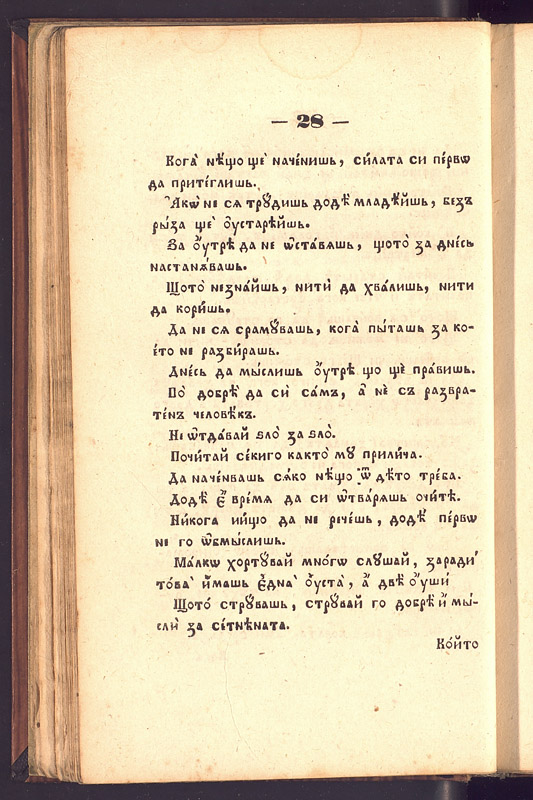 — 28 —
Когà нѣ́що щѐ начéнишь, си́лата си пе́рвѡ
да прите́глишь.
А҆кѡ̀ не сѧ трꙋ́дишь додѣ̀ младѣ́йшь, безъ
ры́за щѐ ᲂу҆старѣ́йшь.
За ᲂу҆́трѣ да не ѡ҆ста́вѧшь, щотò за дне́сь
настанѧ́вашь.
Щотò незна́йшь, нитѝ да хва́лишь, нити
да кори́шь.
Да не сѧ срамꙋ́вашь, когà пы́ташь за ко-
е́то не разби́рашь.
Дне́сь да мы́слишь ᲂу҆́трѣ що щѐ пра́вишь.
По̀ добрѣ̀ да сѝ са́мъ, а҆̀ нѐ съ развра-
те́нъ человѣ́къ.
Не ѿда́вай ѕло̀ за ѕло̀.
Почи́тай се́киго както̀ мꙋ прили́ча.
Да наче́нвашь сѧ́ко нѣ́що ѿ дѣ́то тре́ба.
Додѣ̀ є҆̀ вре́мѧ да си ѿва́рѧшь очи́тѣ.
Ни́кога ни́що да не рече́шь, додѣ̀ пе́рвѡ
не го ѡ҆бмы́слишь.
Ма́лкѡ хортꙋ́вай мно́гѡ слꙋ́шай, заради̾
то́ва и҆́машь є҆дна̀ ᲂу҆ста̀, а҆̀ двѣ̀ ᲂу҆́ши
Щото́ стрꙋ́вашь, стрꙋ́вай го добрѣ̀ и҆̀ мы́-
слѝ за се́тнѣната.
Ко́йто